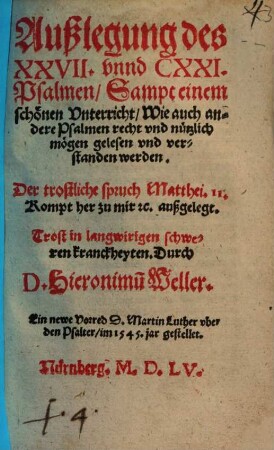 Außlegung des
XXVII. vnnd CXXI.
Psalmen/ Sampt einem
schönen Vnterricht/ Wie auch an-
dere Psalmen recht vnd nützlich
mögen gelesen vnd ver-
standen werden.
Der trostliche spruch Matthei. 11.
Kompt her zu mir ꝛc. außgelegt.
Trost in langwirigen schwe-
ren kranckheyten. Durch
D. Hieronimū Weller.
Ein newe Vorred D. Martin Luther vber
den Psalter/ im 1545. jar gestellet.
Nürnberg. M. D. LV.